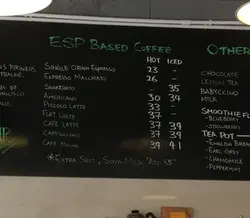 ESP BASED COFFEE
OTHE
HOT ICED
SINGLE ORIGIN ESPRESSO 23
ESPRESSO MACCHIATO 26
SHAKERATO 35
AMERICANO 30 34
PICCOLO LATTE 33
FLAT LATTE 37
CAFE LATTE 37 39
CAPPUCCINO 37 39
CAFE MOCHA 39 41
*EXTRA SHOT, SOYA MILK ADD
CHOCOLATE
LEMON TEA
BABYCCINO
MILK
SMOOTHIE
-BLUEBERRY
-STRAWBE
TEA POT
-ENGLISH BREAK
-EARL GREY
-CHAMOMILE
-PEPPERMINT